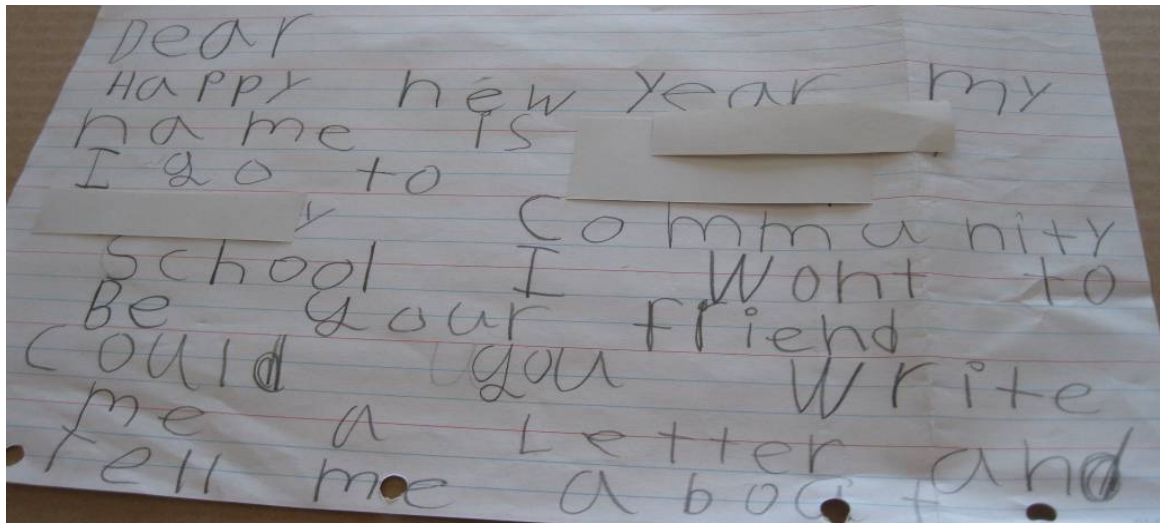 Dear
Happy new year my
name is
I go to
Community
School I Wont to
Be your friend
Could you Write
me a Letter and
Tell me aboat